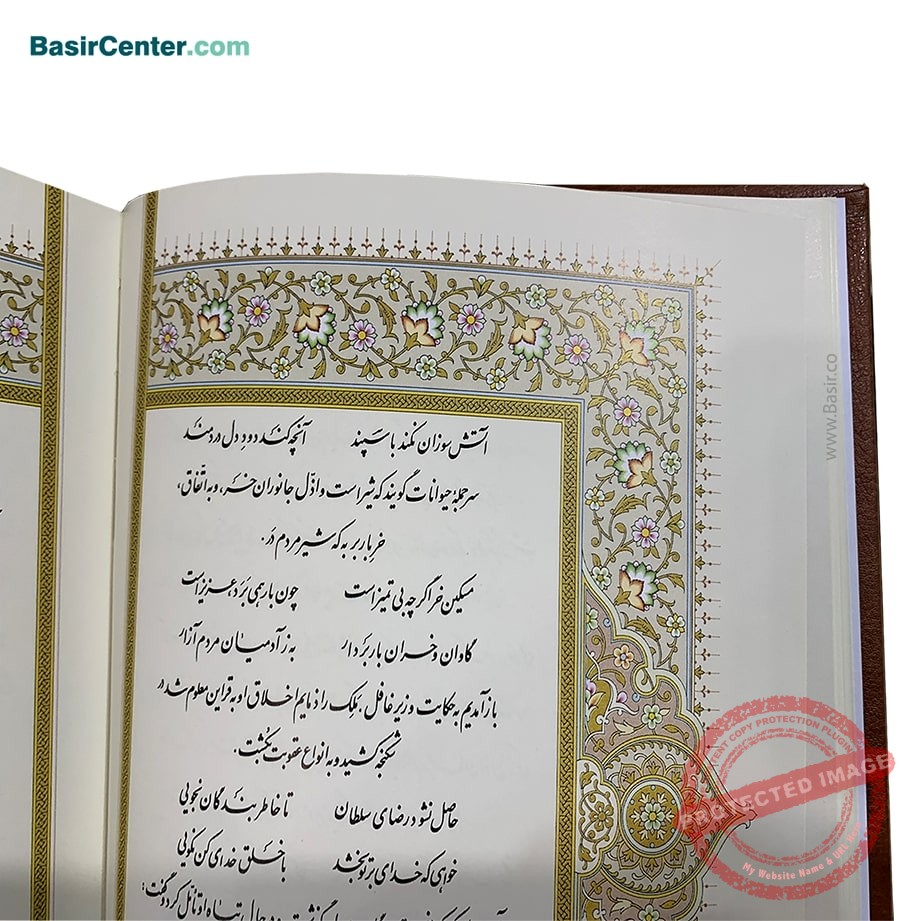 BasirCenter.com
آتش سوزان نکند با سپند آنچه کند دود دل دردمند
سرجمله حیوانات گویند که شیر است و اذلّ جانوران خر، و به اتّفاق،
خر باربر به که شیر مردم در.
مسکین خر اگرچه بی تمیز است چون بار همی بَرَد، عزیز است
گاوان و خران بار بردار به ز آدمیان مردم آزار
بازآمدیم به حکایت وزیر غافل. مَلِک را ذمایم اخلاق او به قراین معلوم شد در
شکنجه کشید و به انواع عقوبت بکشت.
حاصل نشود رضای سلطان تا خاطر بندگان نجویی
خواهی که خدای بر تو بخشد با خلق خدای کن نکویی
حال تباه او تأمّل کرد و گفت:
www.Basir.co
COPY PROTECTION PLUGIN
PROTECTED IMAGE
My Website Name &